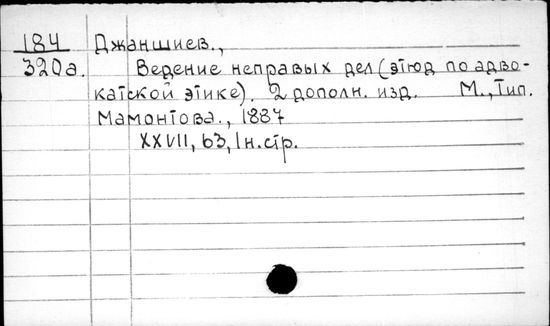 184 Джаншиев.,
320а. Ведение неправых дел (этюд по адво-
катской этике). 2 дополн. изд. М., Тип.
Мамонтова., 1887
XXVII, 63, 1 н. стр.